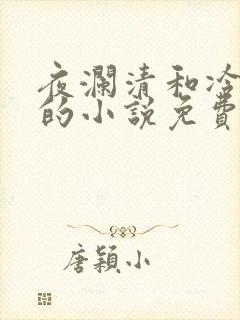 夜瀾清和冷
的小說免費
唐穎小